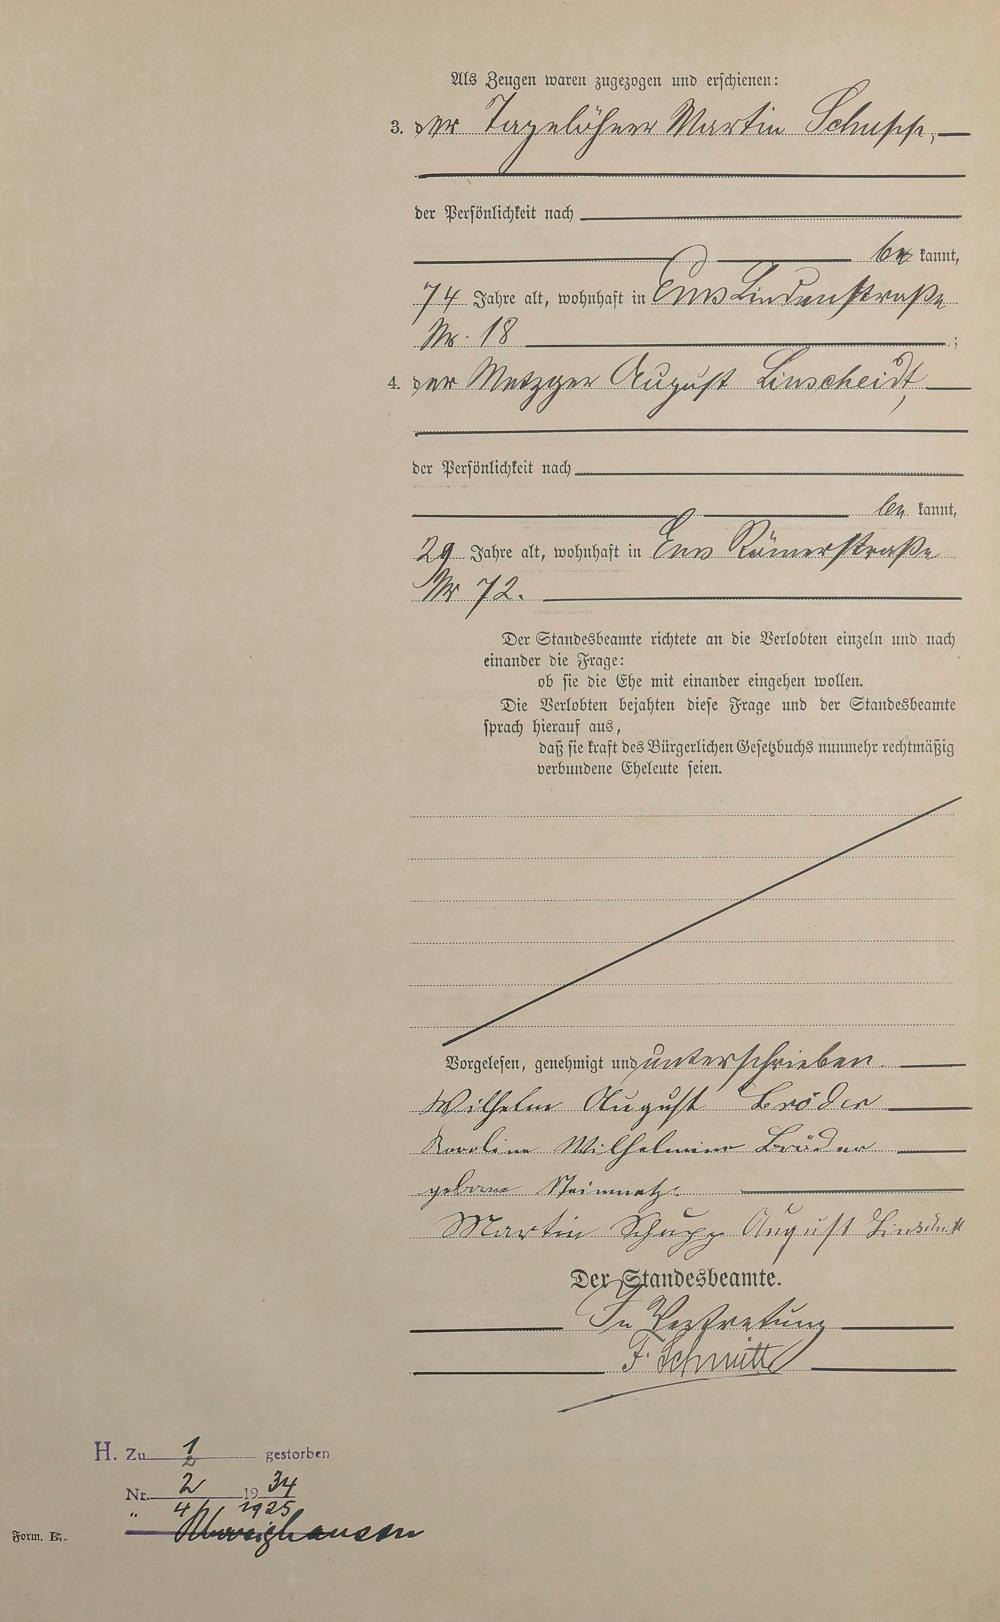 Als Zeugen waren zugezogen und erschienen:
3. der Tagelöhner Martin Schupp,
der Persönlichkeit nach
be kannt,
74 Jahre alt, wohnhaft in Ems Lindenstraße
Nr. 18 ;
4. der Metzger August Linscheidt,
der Persönlichkeit nach
be kannt,
29 Jahre alt, wohnhaft in Ems Römerstraße
Nr 72.
Der Standesbeamte richtete an die Verlobten einzeln und nach
einander die Frage:
ob sie die Ehe mit einander eingehen wollen.
Die Verlobten bejahten diese Frage und der Standesbeamte
sprach hierauf aus,
daß sie kraft des Bürgerlichen Gesetzbuchs nunmehr rechtmäßig
verbundene Eheleute seien.
Vorgelesen, genehmigt und unterschrieben
Wilhelm August Bröder
Karoline Wilhelmine Bröder
geborene Steinmetz.
Martin Schupp August Linscheidt
Der Standesbeamte.
In Vertretung
F. Schmitt
H. Zu 1/2 gestorben
Nr. 2 19 34
" 4/ 1925
Form. B.